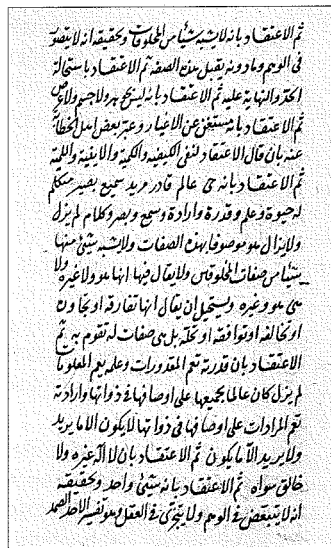 ثم الاعتقاد بانه لا يشبه شيئا من المخلوقات وحقيقته انه لا يتصور
في الوهم وما دونه يقبل هذه الصفة ثم الاعتقاد باستحالة
الحد والنهاية عليه ثم الاعتقاد بانه ليس بجوهر ولا جسم ولا عرض
ثم الاعتقاد بانه مستغن عن الاغيار وعبر بعض اهل
عنه بان قال الاعتقاد لنفى الكيفيه والكمية والاينية واللمية
ثم الاعتقاد بانه حى عالم قادر مريد سميع بصير متكلم
له حيوة وعلم وقدرة وارادة وسمع وبصر وكلام لم يزل
ولا يزال هو موصوفا بهذه الصفات ولا يشبه شئ منها
شيئا من صفات المخلوقين ولا يقال فيها انها هو ولا غيره ولا
هى هو وغيره ويستحيل ان يقال انها تفارقه او تجاوره
او تخالفه او توافقه او تحله بل هى صفات له تقوم به ثم
الاعتقاد بان قدرته تعم المقدورات وعلمه يعم المعلومات
لم يزل كان عالما بجميعها على اوصافها فى ذواتها وارادته
تعم المرادات على اوصافها فى ذواتها لا يكون الا ما يريد
ولا يريد الا ما يكون ثم الاعتقاد بان لا اله غيره ولا
خالق سواه ثم الاعتقاد بانه شئ واحد وحقيقته
انه لا يتبعض فى الوهم ولا يتجزى فى العقل وهو تفسير الاحد الصمد